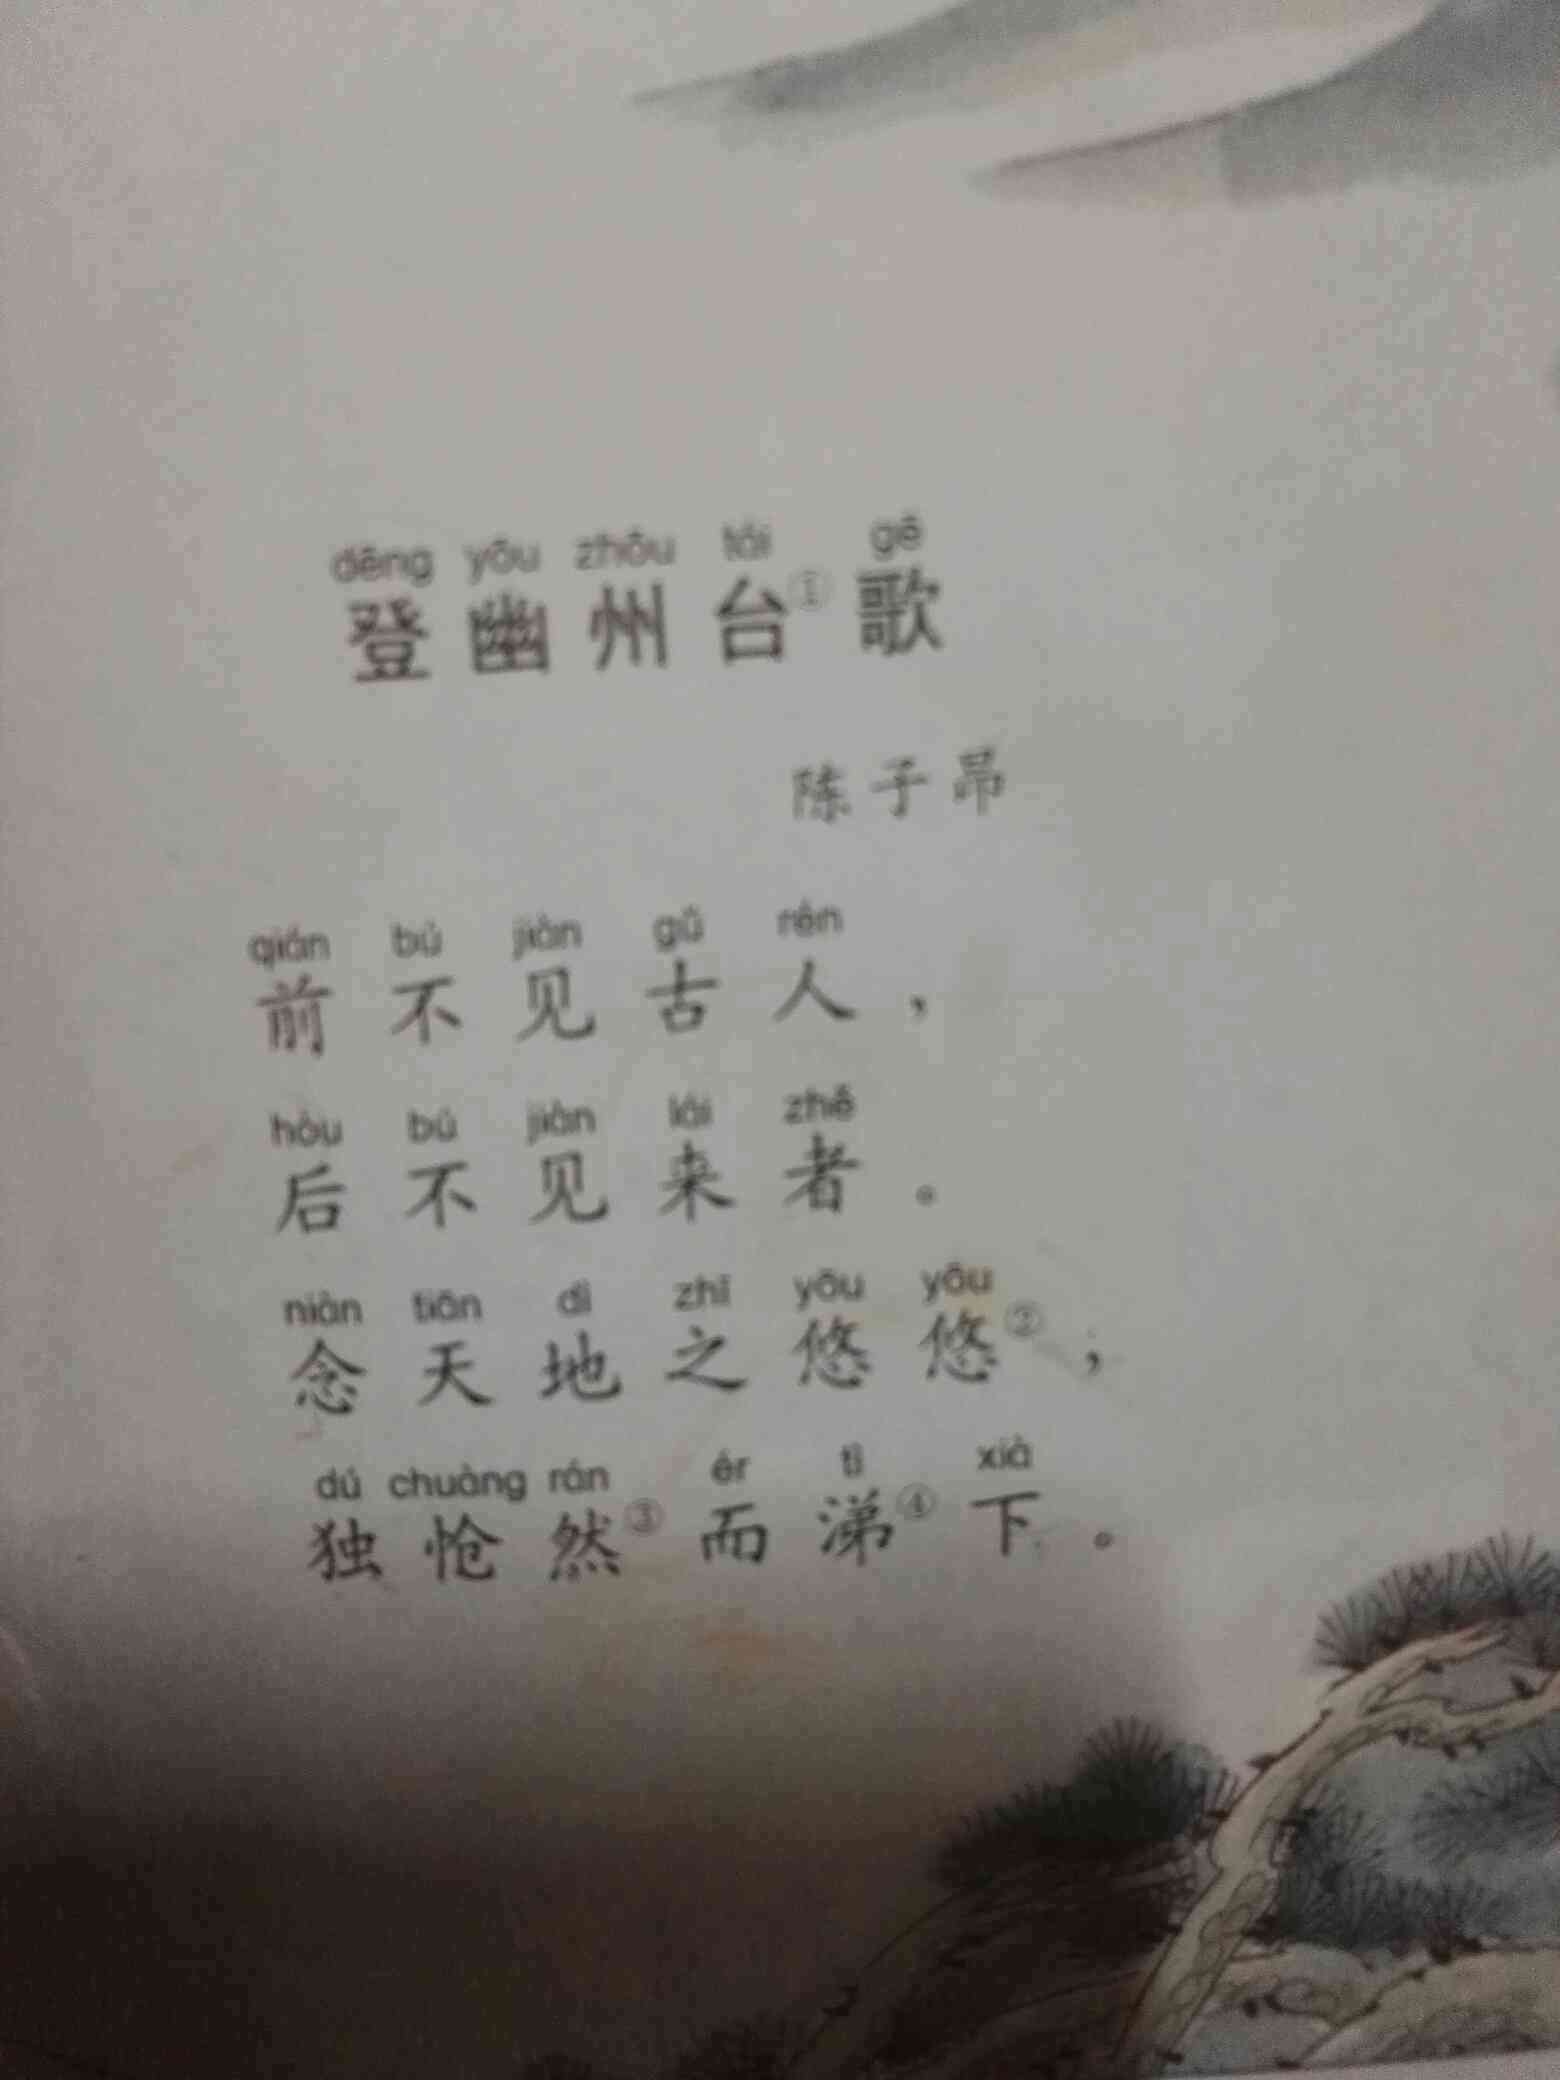 dēng yōu zhōu tái gē
登幽州台①歌
陈子昂
qián bú jiàn gǔ rén
前不见古人，
hòu bú jiàn lái zhě
后不见来者。
niàn tiān dì zhī yōu yōu
念天地之悠悠②，
dú chuàng rán ér tì xià
独怆然③而涕④下。